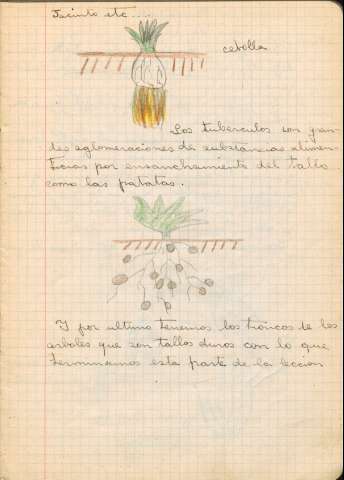 Jacinto etc.....
cebolla
Los tuberculos son gran-
des aglomeraciones de substancias alimen-
ticias por ensanchamiento del tallo
como las patatas.
Y por ultimo tenemos los troncos de los
arboles que son tallos duros con lo que
terminamos esta parte de la leccion